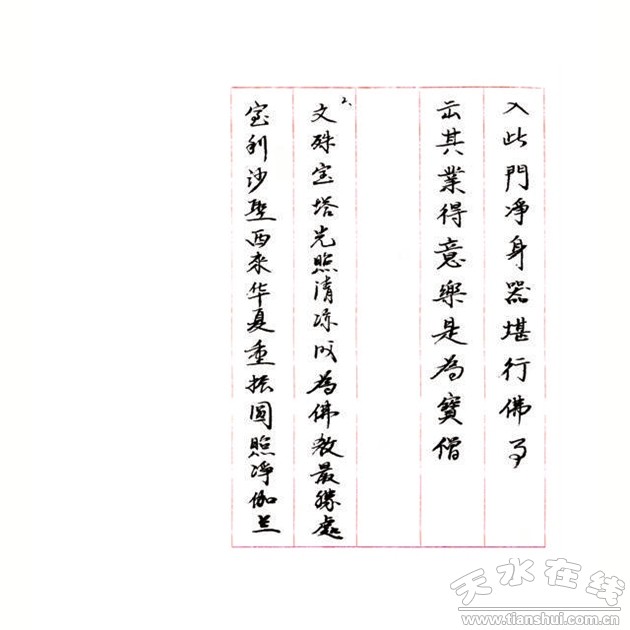 入此門净身器堪行佛事
其業得意樂是為寶僧
2、文殊宝塔光照清凉成為佛教最勝處
室利沙聖西来华夏重振圆照净伽兰
天水在线
www.tianshui.com.cn